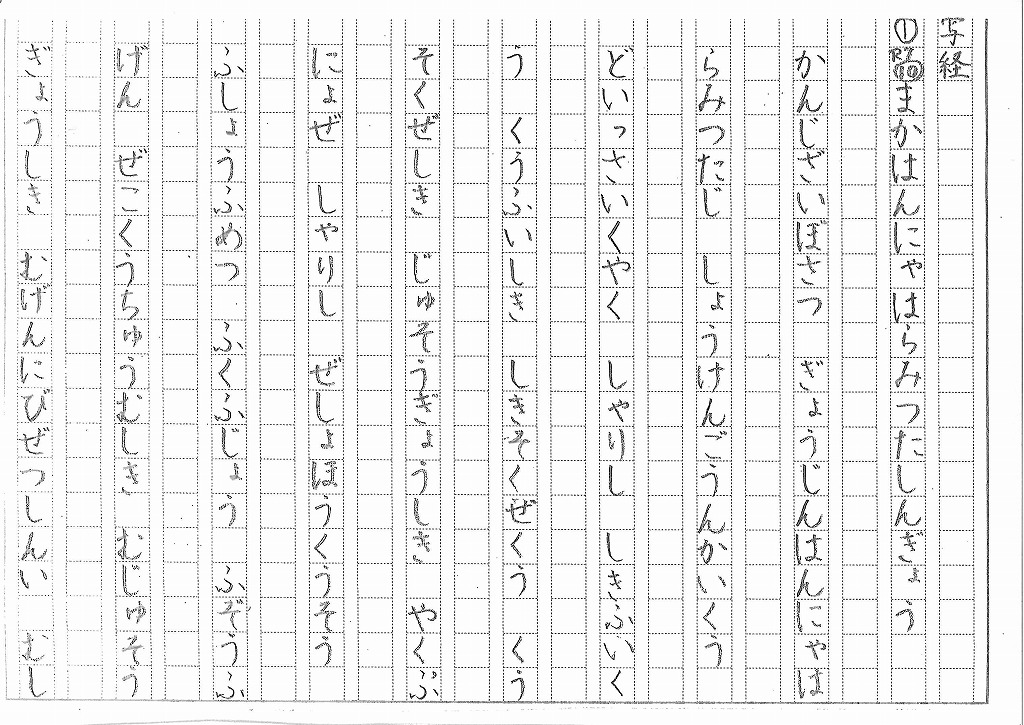 写経
① まかはんにゃはらみつたしんぎょう
かんじざいぼさつ ぎょうじんはんにゃは
らみつたじ しょうけんごうんかいくう
どいっさいくやく しゃりし しきふいく
う くうふいしき しきそくぜくう くう
そくぜしき じゅそうぎょうしき やくぶ
にょぜ しゃりし ぜしょほうくうそう
ふしょうふめつ ふくふじょう ふぞうふ
げん ぜこくうちゅうむしき むじゅそう
ぎょうしき むげんにびぜつしんい むし